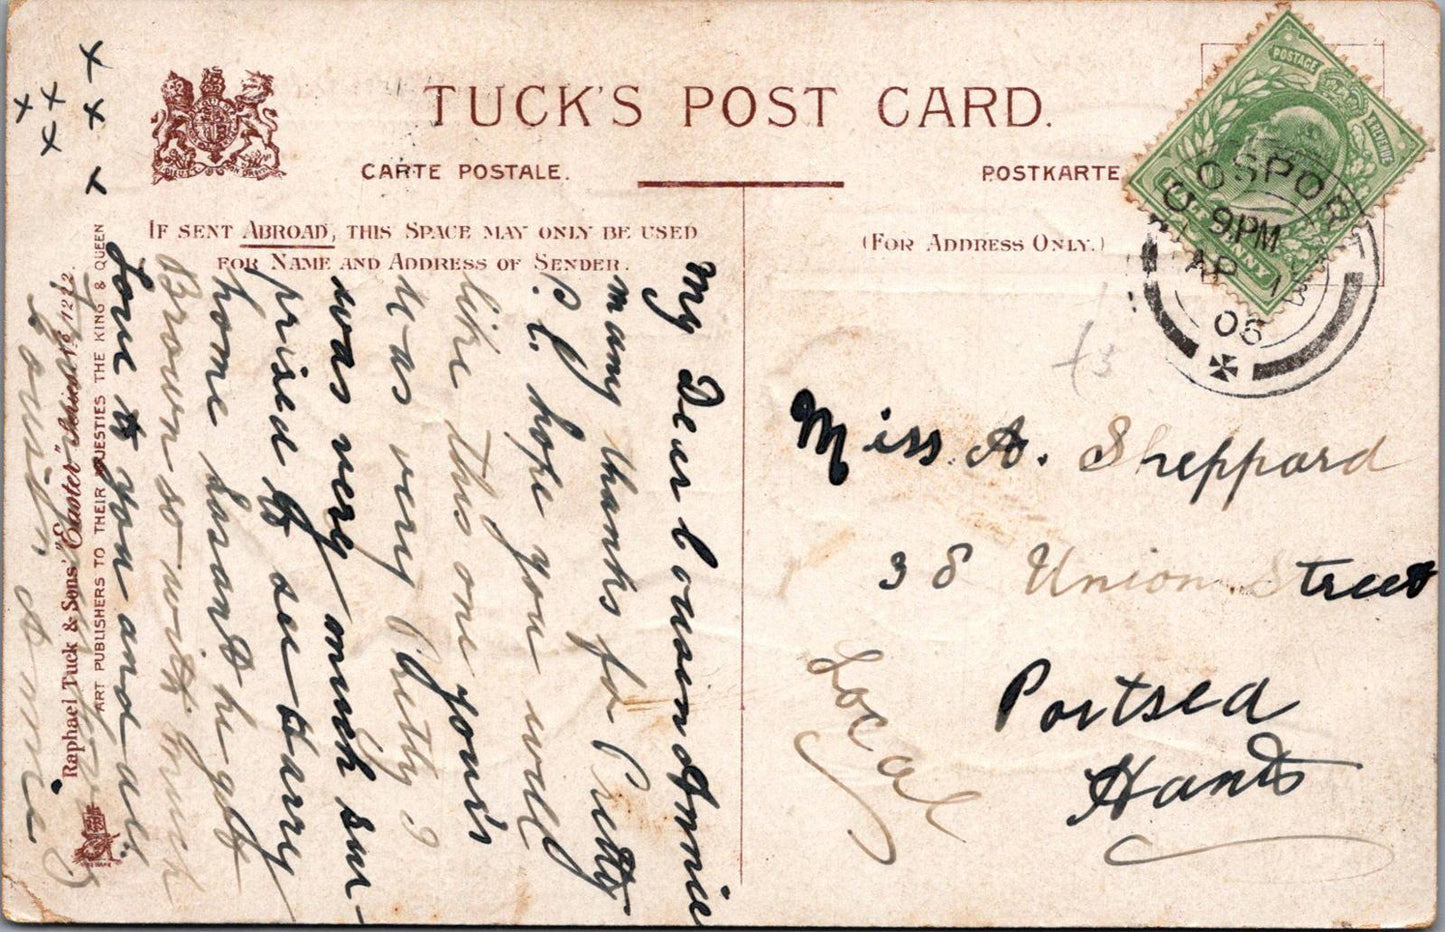 TUCK'S POST CARD.
CARTE POSTALE.
POSTKARTE
IF SENT ABROAD, THIS SPACE MAY ONLY BE USED
FOR NAME AND ADDRESS OF SENDER.
(FOR ADDRESS ONLY.)
POSTAGE
& REVENUE
GOSPOR
9.PM
AP
06
Miss. A. Sheppard
38 Union Street
Portsea
Hants
Local
My Dear Cousin Annie
many thanks for Pretty
P.C. hope you will
like this one your's
was very Pretty I
was very much sur-
prised to see Harry
home hasant he got
Brown so with much
Love to you and all
from your loving
Cousin
x x x
x x x
Raphael Tuck & Sons' "Easter" Series No 1222.
ART PUBLISHERS TO THEIR MAJESTIES THE KING & QUEEN